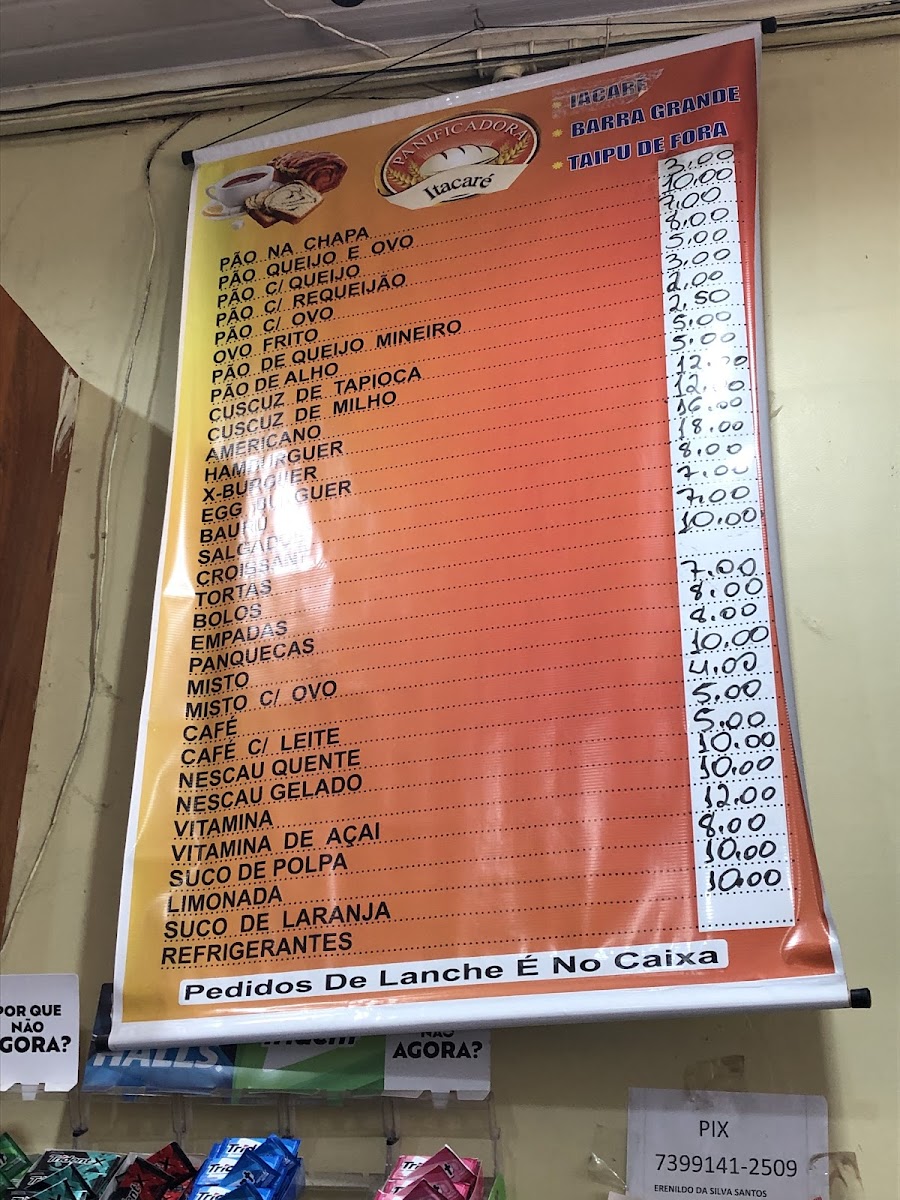 PANIFICADORA
Itacaré
BARRA GRANDE
TAIPU DE FORA
PÃO NA CHAPA 3,00
PÃO QUEIJO E OVO 10,00
PÃO C/ QUEIJO 7,00
PÃO C/ REQUEIJÃO 8,00
PÃO C/ OVO 5,00
OVO FRITO 3,00
PÃO DE QUEIJO MINEIRO 2,00
PÃO DE ALHO 2,50
CUSCUZ DE TAPIOCA 5,00
CUSCUZ DE MILHO 5,00
AMERICANO 12,00
HAMBURGUER 12,00
X-BURGUER 16,00
EGG BURGUER 18,00
BAURU 8,00
SALGADOS 7,00
CROISSANT 7,00
TORTAS 10,00
BOLOS
EMPADAS 7,00
PANQUECAS 8,00
MISTO 8,00
MISTO C/ OVO 10,00
CAFÉ 4,00
CAFÉ C/ LEITE 5,00
NESCAU QUENTE 5,00
NESCAU GELADO 10,00
VITAMINA 10,00
VITAMINA DE AÇAI 12,00
SUCO DE POLPA 8,00
LIMONADA 10,00
SUCO DE LARANJA 10,00
REFRIGERANTES
Pedidos De Lanche É No Caixa
POR QUE
NÃO
AGORA?
HALLS
NÃO
AGORA?
PIX
7399141-2509
ERENILDO DA SILVA SANTOS
Trident
Trident
Trident